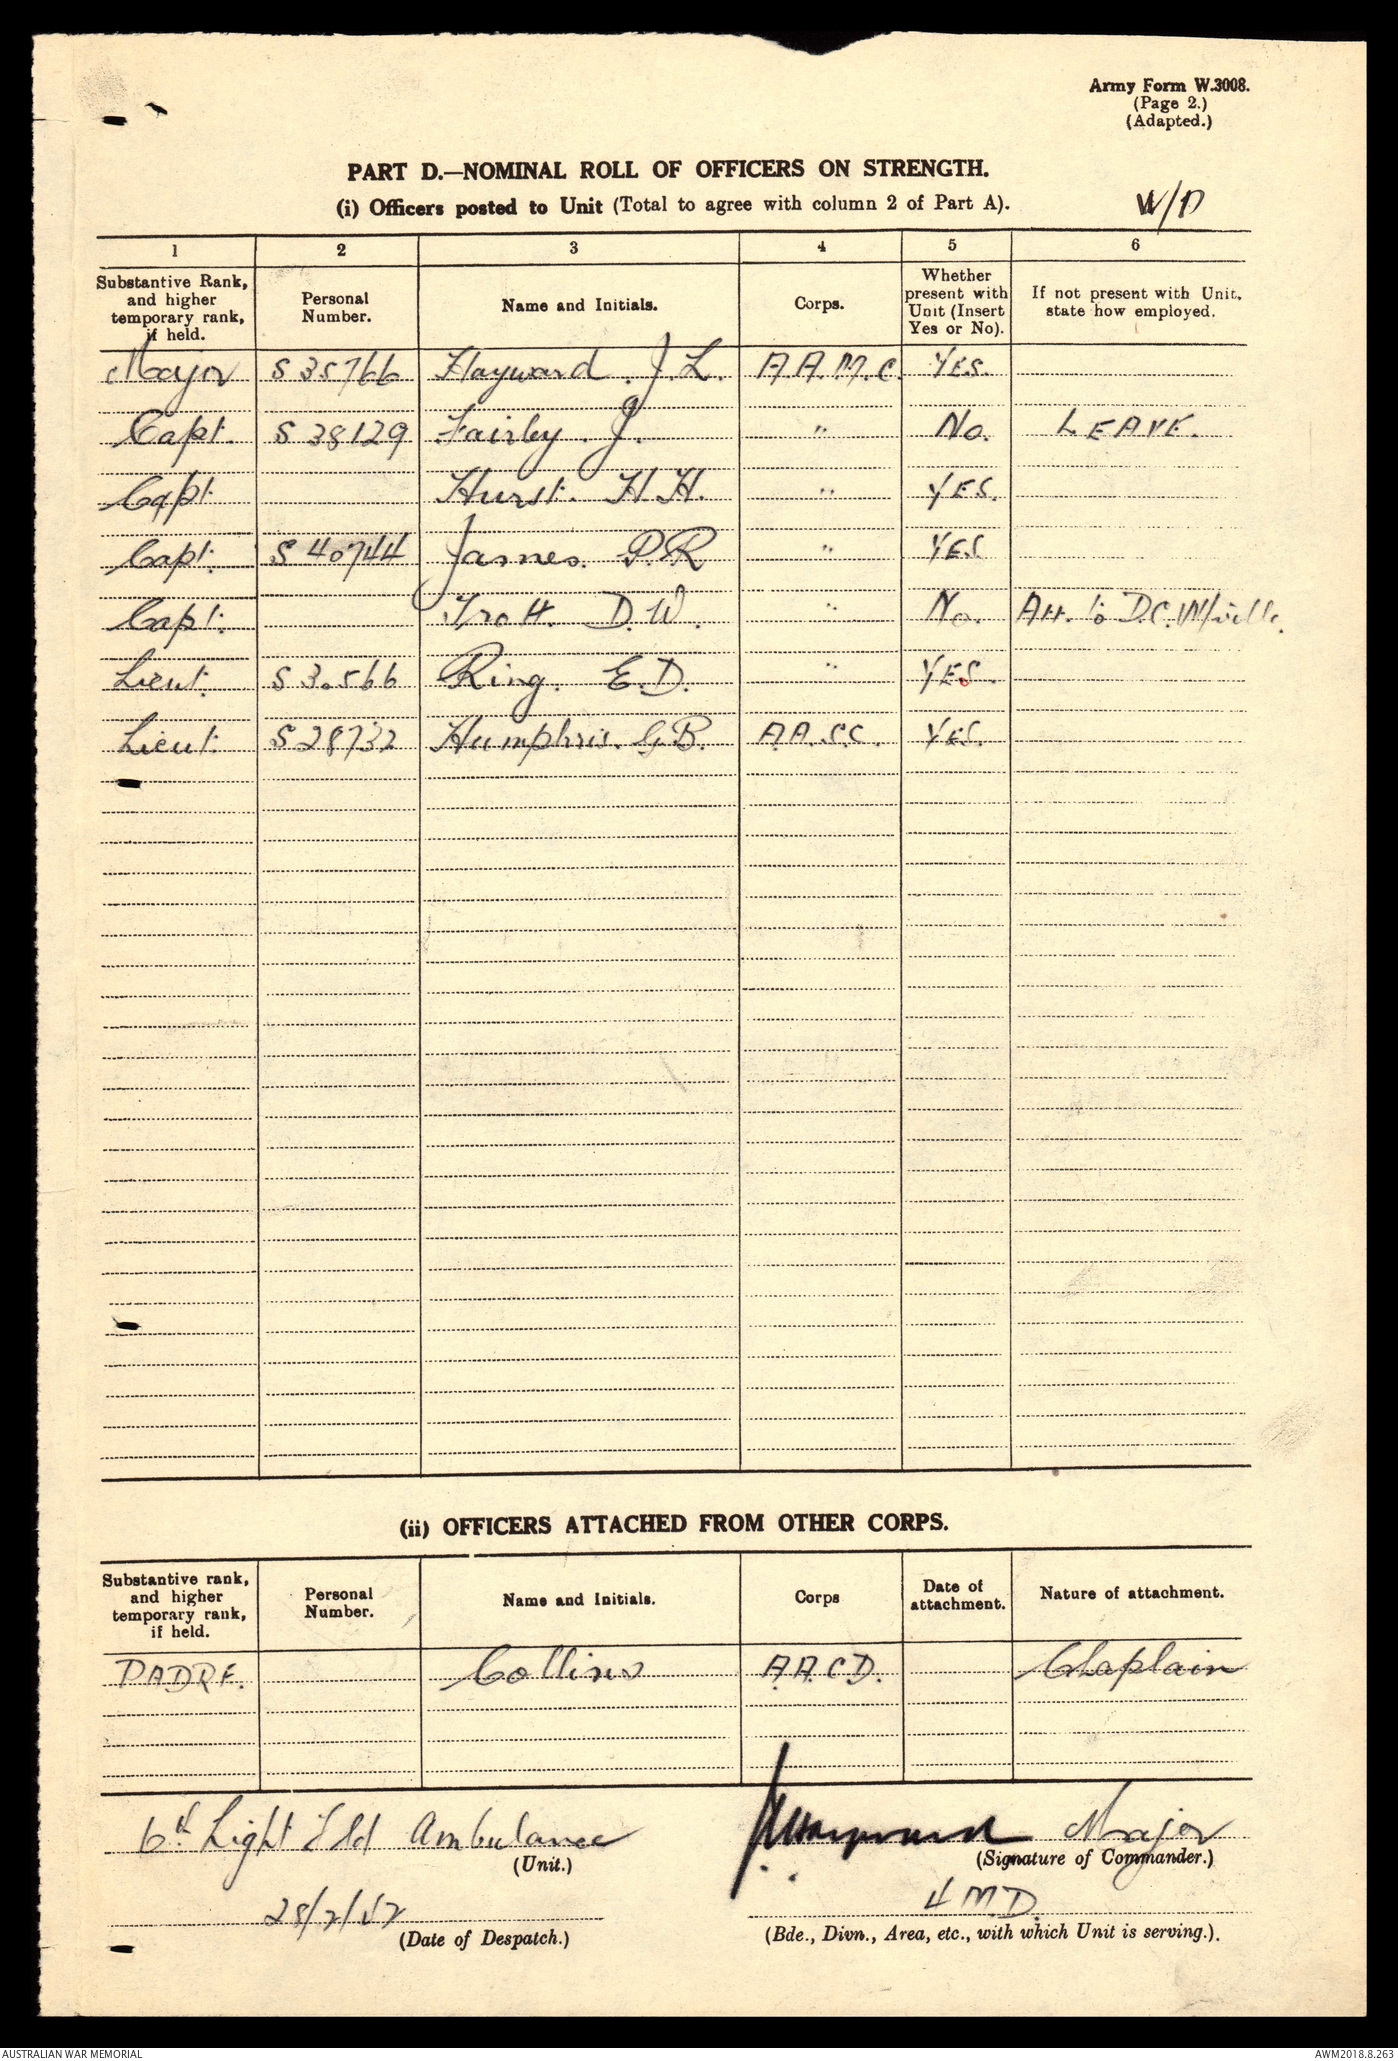 Army Form W.3008.
(Page 2.)
(Adapted.)
PART D.—NOMINAL ROLL OF OFFICERS ON STRENGTH.
(i) Officers posted to Unit (Total to agree with column 2 of Part A).
W/D
1 2 3 4 5 6
Substantive Rank, and higher temporary rank, if held. Personal Number. Name and Initials. Corps. Whether present with Unit (Insert Yes or No). If not present with Unit, state how employed.
Major S 35766 Hayward. J. L. A.A.M.C. YES.
Capt. S 38129 Fairby. J. " No. LEAVE.
Capt. Hurst. H.H. " YES.
Capt. S 40744 James. P.R " YES
Capt. Trott. D.W. " No. Att. to D.C.
Lieut. S 30566 Ring. E.D. " YES.
Lieut. S 28732 Humphris. G.B. A.A.S.C. YES.
(ii) OFFICERS ATTACHED FROM OTHER CORPS.
Substantive rank, and higher temporary rank, if held. Personal Number. Name and Initials. Corps Date of attachment. Nature of attachment.
PADRE. Collins A.A.C.D. Chaplain
6th Light Fld Ambulance
(Unit.)
JLHayward Major
(Signature of Commander.)
28/2/42
(Date of Despatch.)
4 M.D.
(Bde., Divn., Area, etc., with which Unit is serving.).
AUSTRALIAN WAR MEMORIAL
AWM2018.8.263